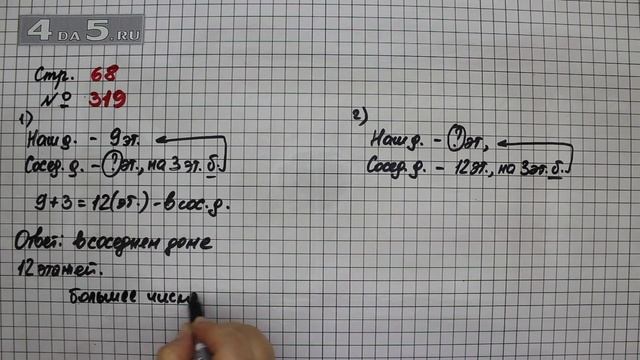 4DA5.RU
Стр. 68
№ 319
1)
Наш д. - 9 эт.
Сосед. д. - ? эт., на 3 эт. б.
9 + 3 = 12 (эт.) - в сос. д.
Ответ: в соседнем доме
12 этажей.
Большее числ
2)
Наш д. - ? эт,
Сосед. д. - 12 эт., на 3 эт. б.